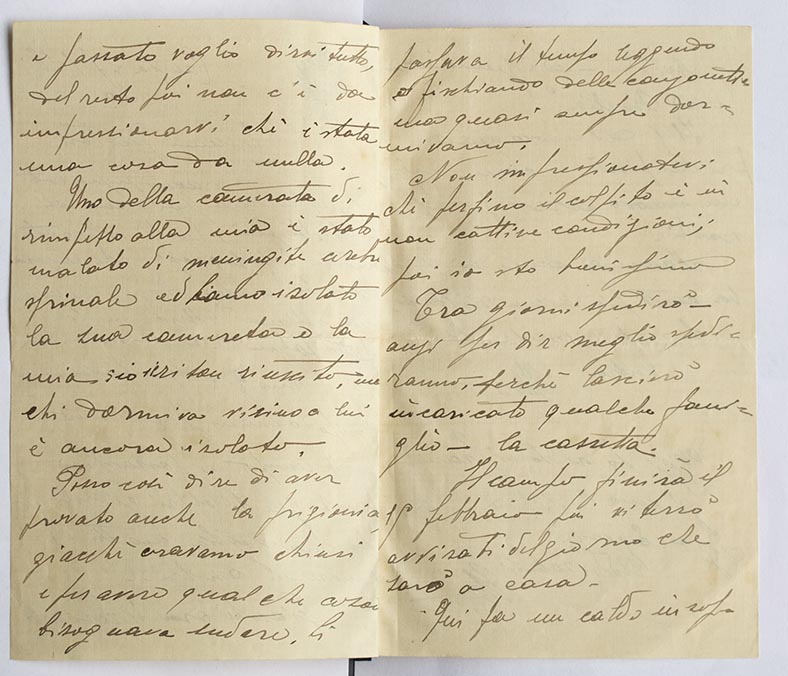 e passato voglio dirvi tutto,
del resto poi non c'è da
impressionarvi chè è stata
una cosa da nulla.
Uno della camerata di
rimpetto alla mia è stato
malato di meningite cerebro
spinale ed hanno isolato
la sua camerata e la
mia. Io son riuscito, ma
chi dormiva vicino a lui
è ancora isolato.
Posso così dire di aver
provato anche la prigionia,
giacchè eravamo chiusi
e per avere qualche cosa
bisognava sudare, lì
passava il tempo leggendo
e fischiando delle canzonette
ma quasi sempre dor-
mivamo.
Non impressionatevi
chè perfino il colpito è in
non cattive condizioni;
poi io sto benissimo
Tra giorni spedirò -
anzi per dir meglio spedi-
ranno, perchè lascerò
incaricato qualche fami-
glio - la cassetta.
Il campo finirà il
15 febbraio poi vi terrò
avvisati del giorno che
sarò a casa -
Qui fa un caldo insop